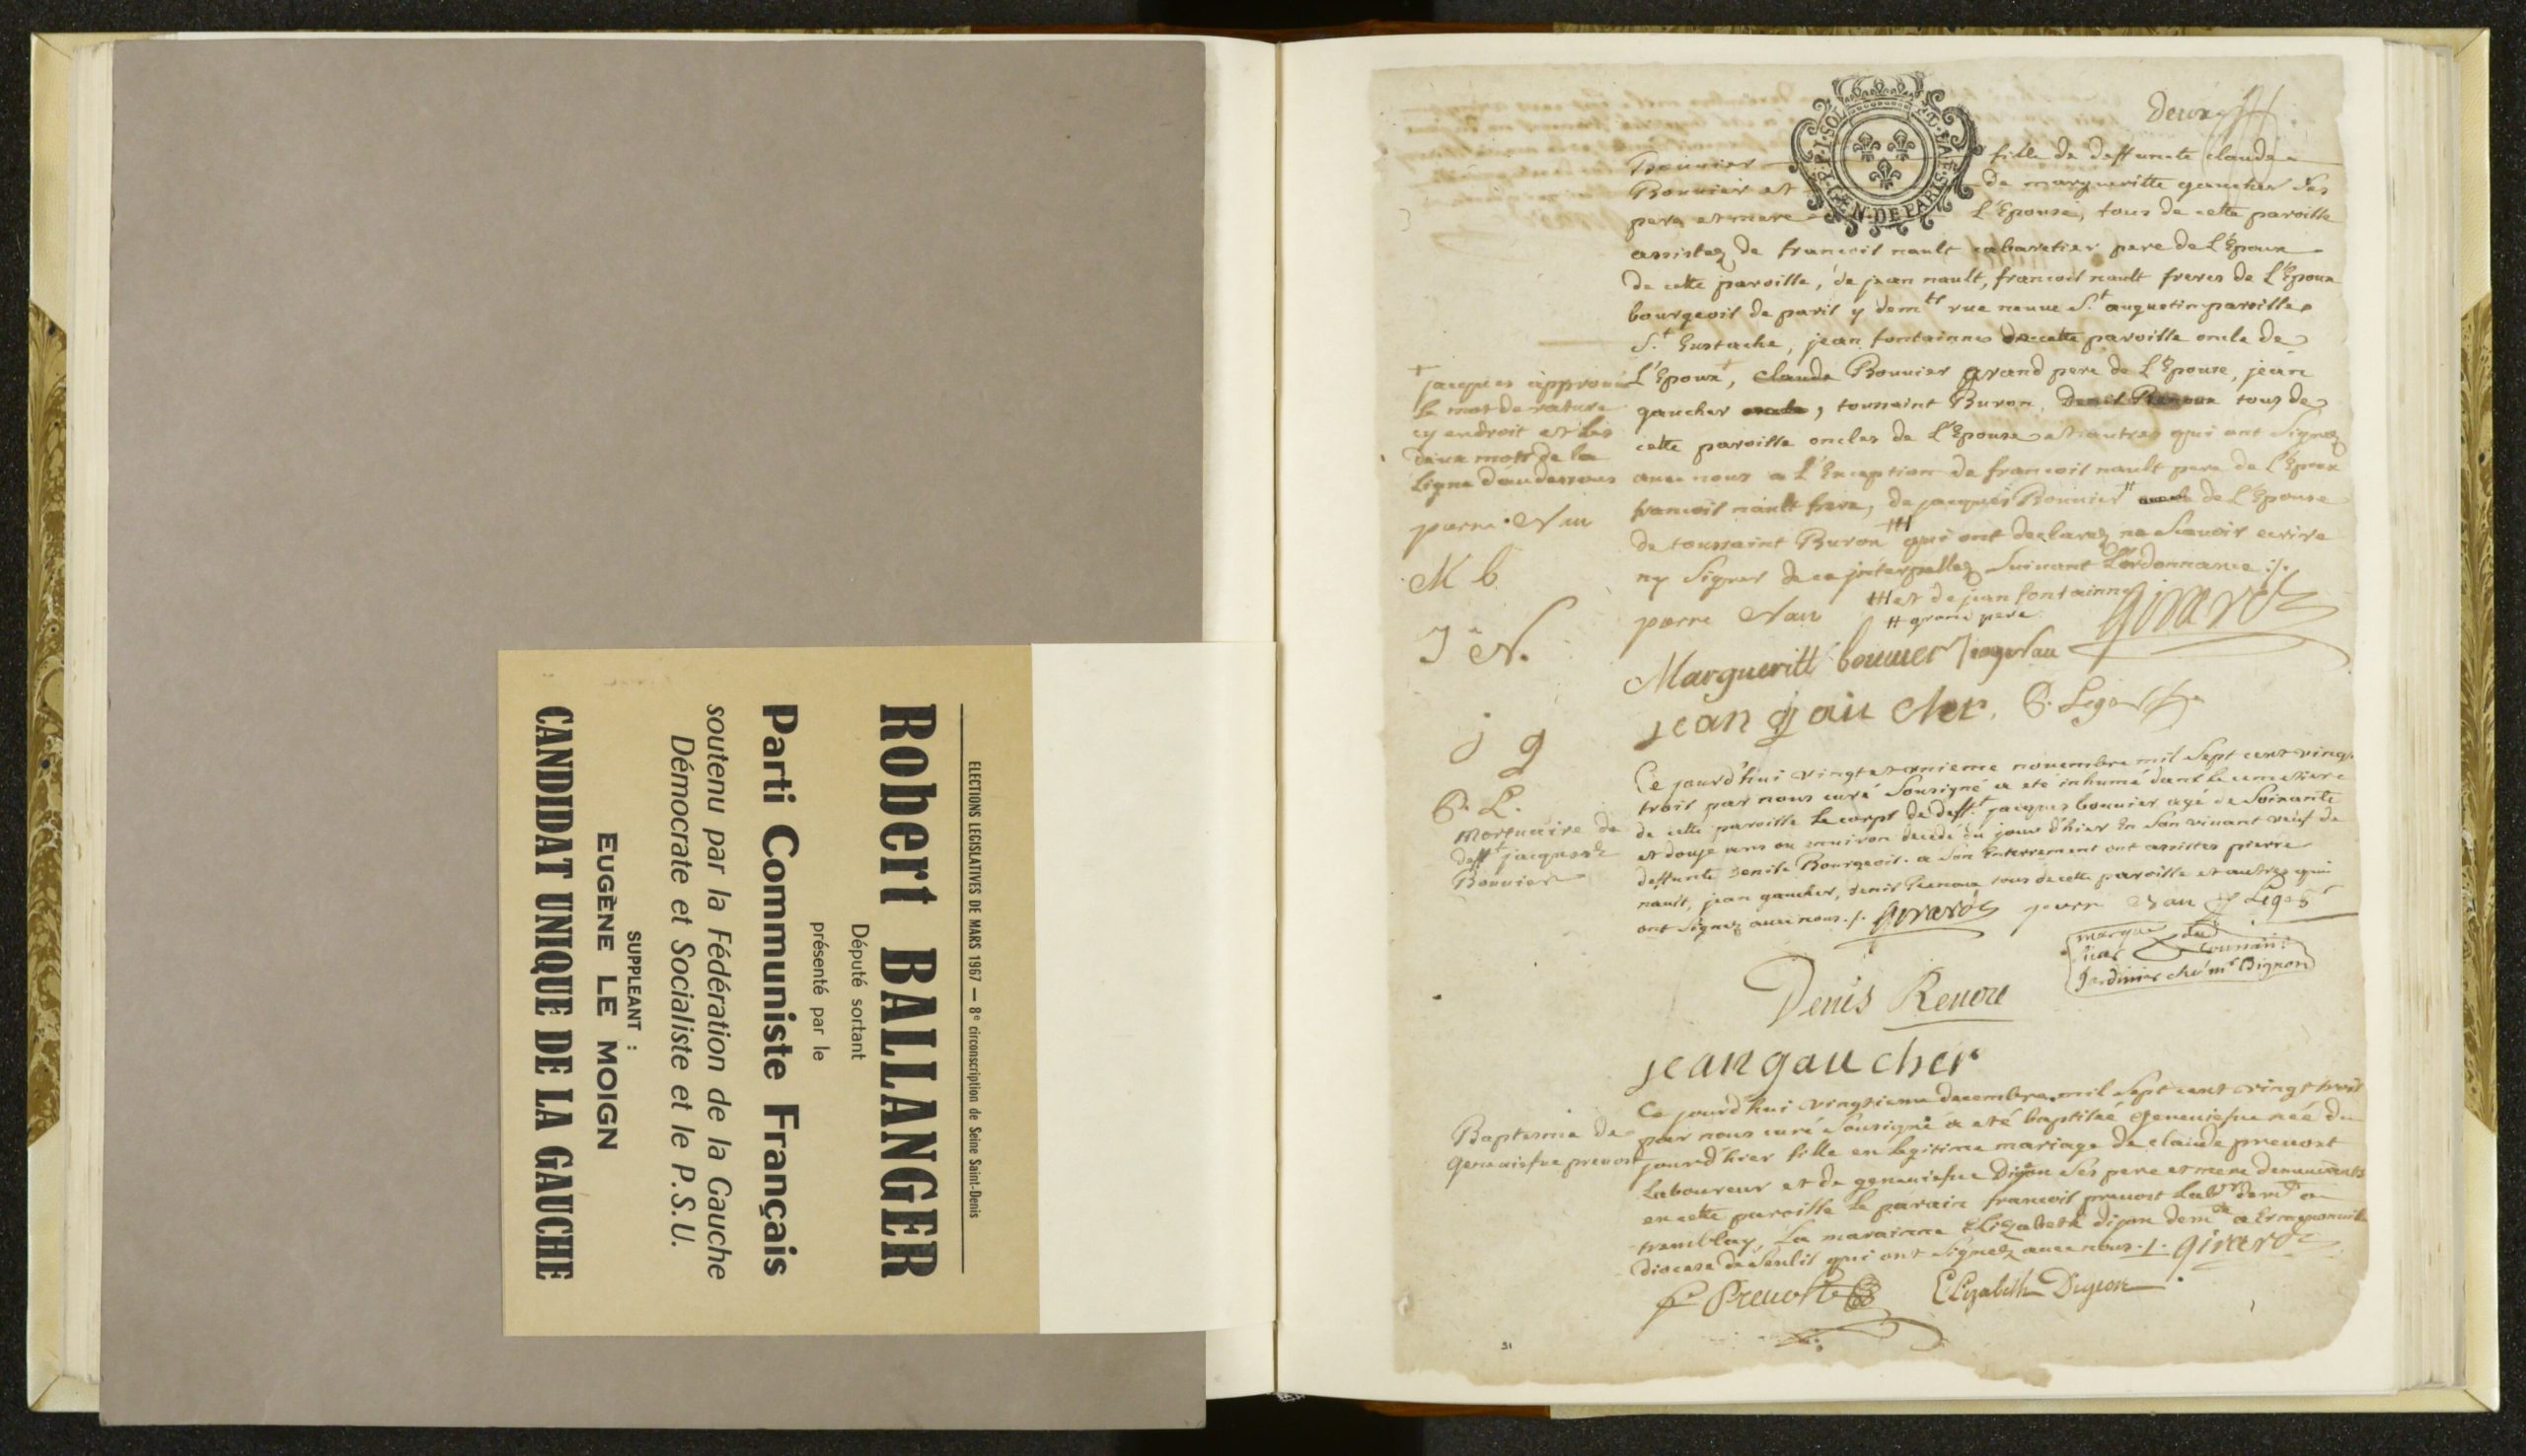 ELECTIONS LEGISLATIVES DE MARS 1967 — 8e circonscription de Seine Saint-Denis
Robert BALLANGER
Député sortant
présenté par le
Parti Communiste Français
soutenu par la Fédération de la Gauche
Démocrate et Socialiste et le P.S.U.
SUPPLEANT :
EUGÈNE LE MOIGN
CANDIDAT UNIQUE DE LA GAUCHE
deux
GEN·DE PARIS
Bouuier fille de deffuncte claude
Bouuier et de margueritte gaucher ses
pere et mere L'Epouse, tous de cette paroisse
assistez de francois nault cabaretier pere de L'Epoux
de cette paroisse, de jean nault, francois nault freres de L'Epoux
bourgeois de paris y demts rue neuue St augustin paroisse
St Eustache, jean fontainne de cette paroisse oncle de
L'Epoux +, claude Bouuier grand pere de L'Epouse, jean
gaucher oncle, toussaint Buron, Denis Renoux tous de
cette paroisse oncles de L'Epouse et autres qui ont signez
auec nous a L'Exception de francois nault pere de L'Epoux
francois nault frere, de jacques Bouuier # de L'Epouse
de toussaint Buron ## qui ont declarez ne scauoir ecrire
ny signer de ce jnterpellez suiuant L'ordonnance ./.
## et de jean fontainne
# grand pere
+ jacques approuué
le mot de rature
cy endroit et les
deux mots de la
ligne d'au dessous
pierre Nau
M b
J N.
j g
P. L.
pierre Nau
girard
Margueritt bouuier
jean gau cher.
Mortuaire de
defft jacques
Bouuier
Ce jourd'hui vingt et unieme nouembre mil sept cent vingt
trois par nous curé sousigné a eté inhumé dans le cimetiere
de cette paroisse le corps de defft jacques bouuier agé de soixante
et douze ans ou enuiron decedé du jour d'hier En son viuant veuf de
deffunte denise Bourgeois. a son Enterrement ont assistez pierre
nault, jean gaucher, denis Renoux tous de cette paroisse et autres qui
ont signez auec nous ./. girard pierre Nau
marque du
toussain
Jardinier ché mr Bignon
Denis Renou
jean gaucher
Baptesme de
geneuiefue preuost
Ce jourd'hui vingtieme decembre mil sept cent vingt trois
par nous curé sousigné a eté baptisée geneuiefue née du
jourd'hier fille en legitime mariage de claude preuost
Laboureur et de geneuiefue Dijon ses pere et mere demeurants
en cette paroisse le parain francois preuost labr demt a
tremblay, La marainne Elizabeth dijon demte a Ermenonuille
diocese de senlis qui ont signez auec nous ./. girard
Preuoste Elizabeth Digeon